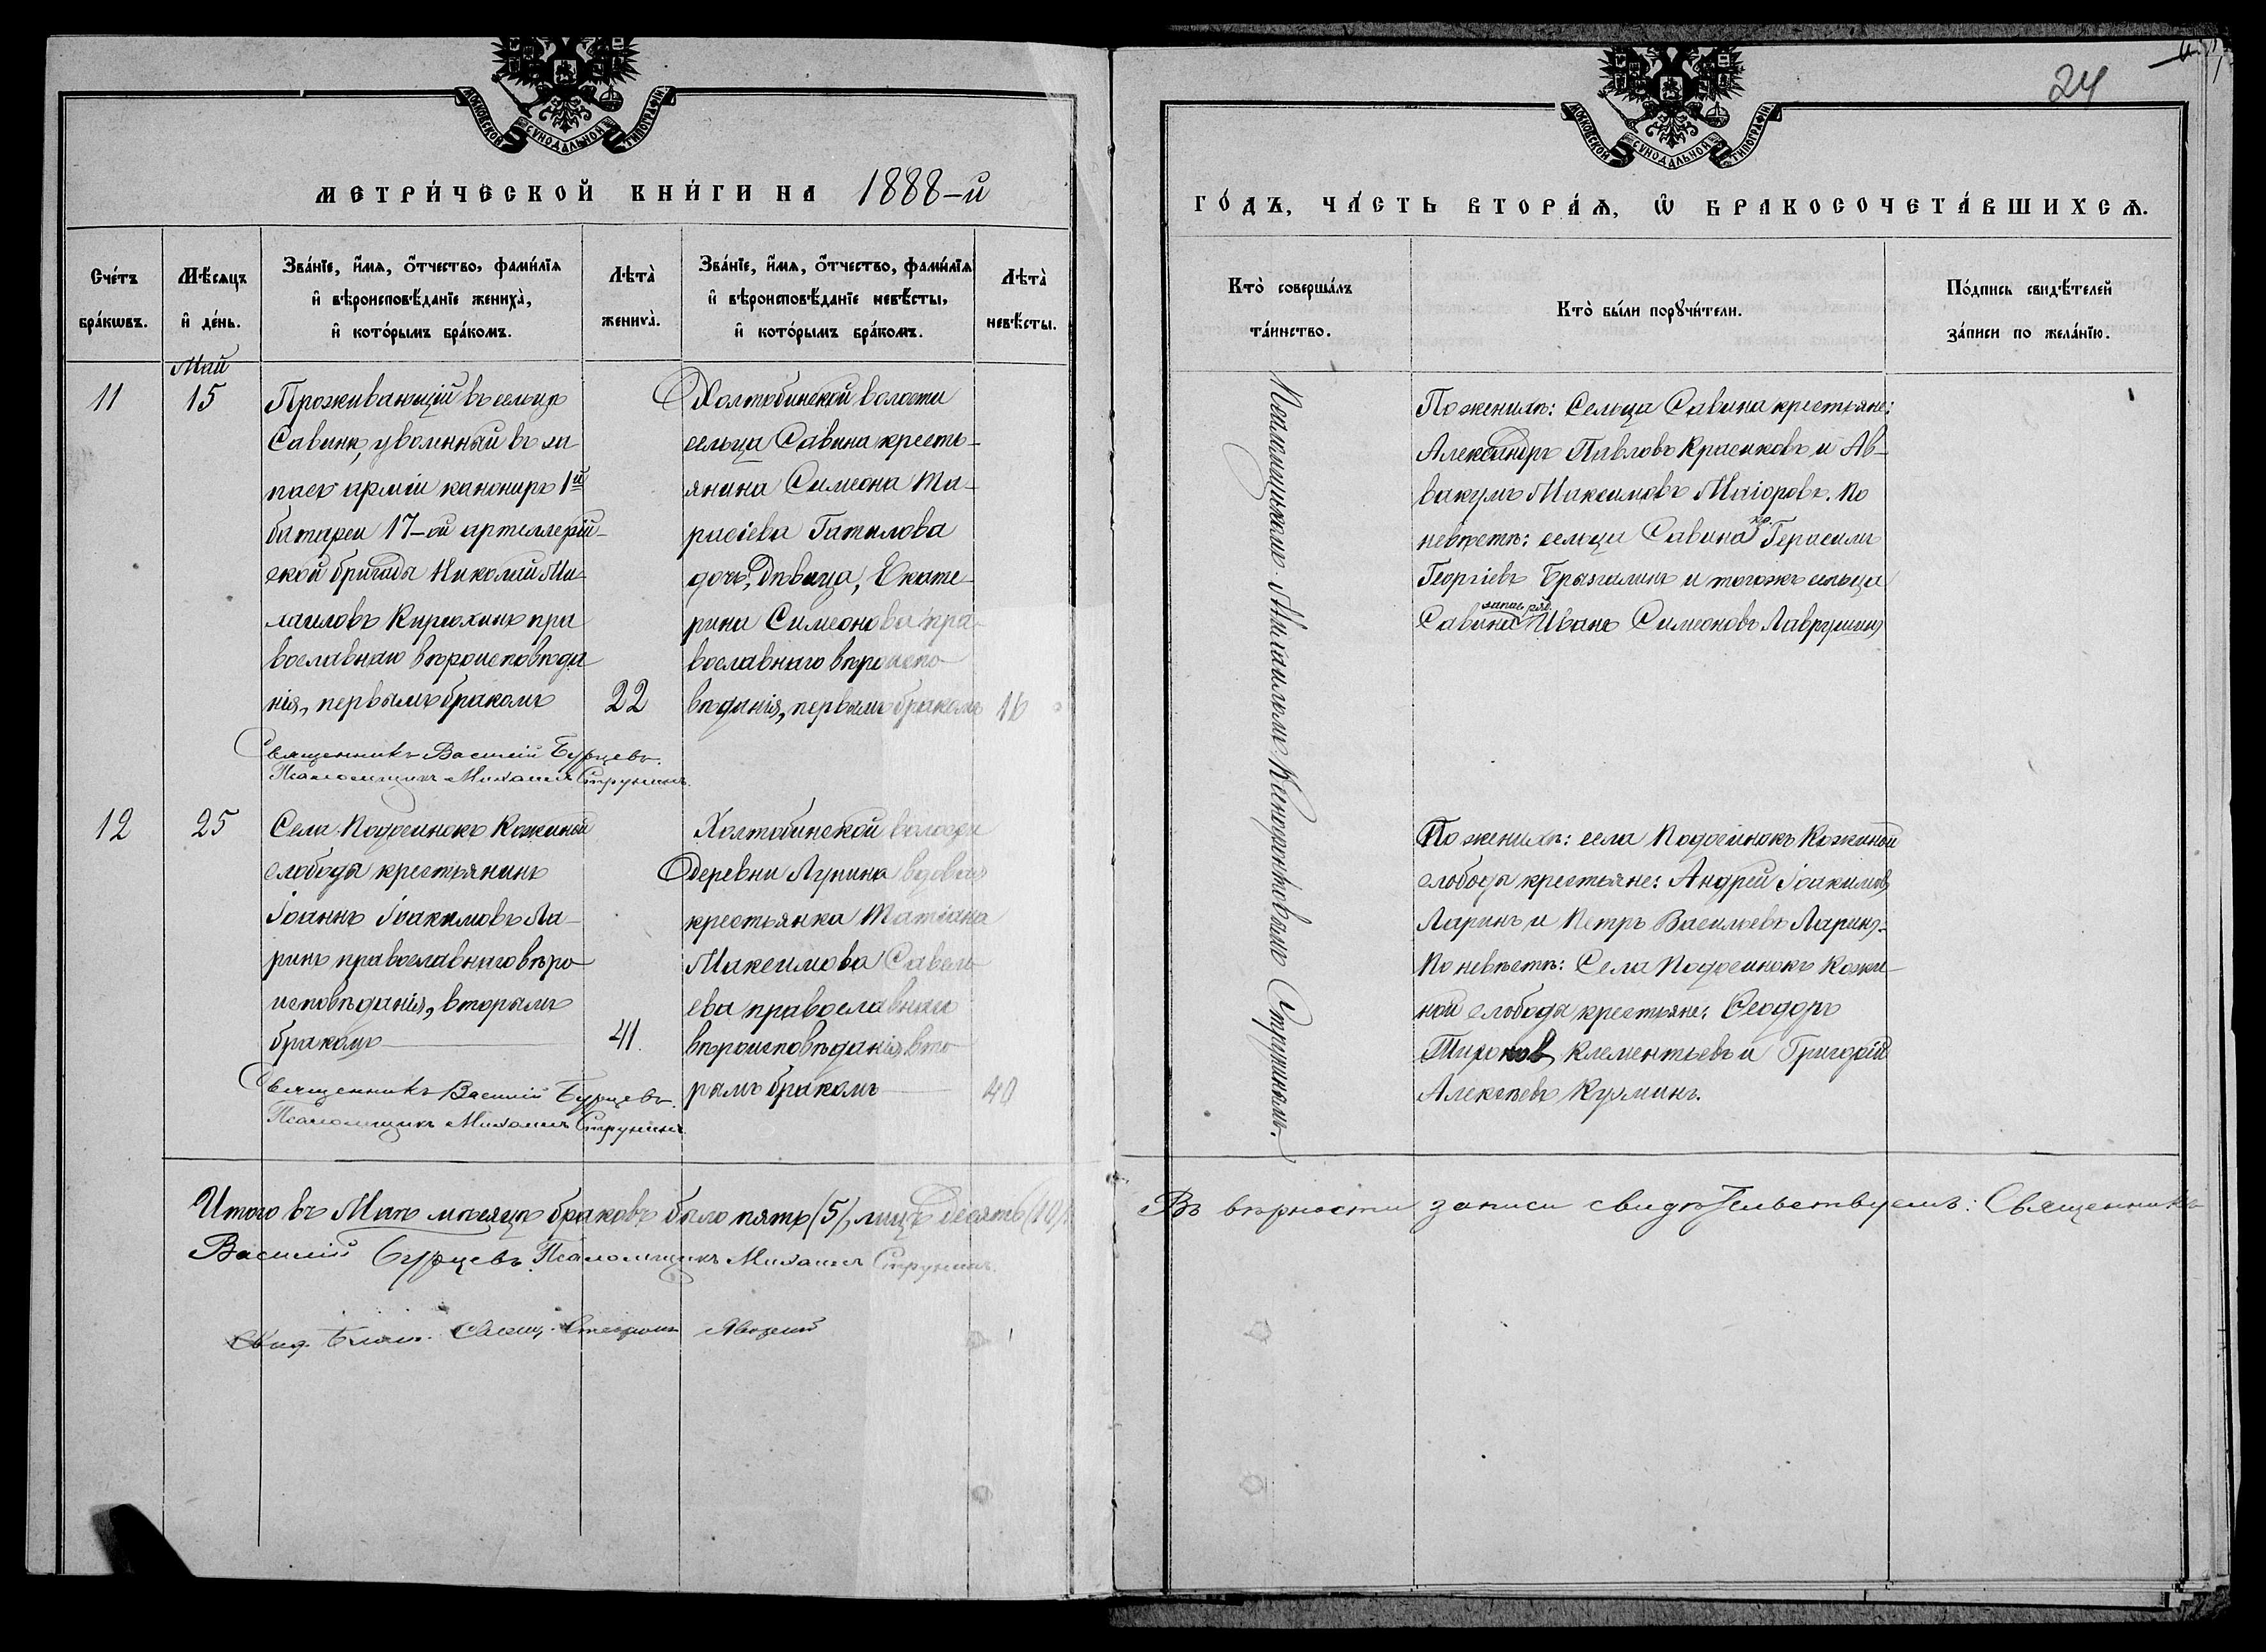 МОСКОВСКОЙ СѴНОДАЛЬНОЙ ТИПОГРАФІИ
МЕТРИ́ЧЕСКОЙ КНИ́ГИ НА 1888-й
Сче́тъ бра́кѡвъ.
Мѣ́сяцъ и҆ де́нь.
Зва́нїе, и҆́мѧ, ѻ҆́тчество, фами́лїѧ
и҆ вѣроисповѣ́данїе жениха̀,
и҆ кото́рымъ бра́комъ.
Лѣта̀ жениха̀.
Зва́нїе, и҆́мѧ, ѻ҆́тчество, фами́лїѧ
и҆ вѣроисповѣ́данїе невѣ́сты,
и҆ кото́рымъ бра́комъ.
Лѣта̀ невѣ́сты.
Май
11
15
Проживающій въ сельцѣ
Савинѣ, уволенный въ за
пасъ арміи канониръ 1й
батареи 17-ой артиллерій-
ской бригады Николай Ми-
хаиловъ Кирюхинъ пра
вославнаго вѣроисповѣда
нія, первымъ бракомъ
22
Холтобинской волости
сельца Савина кресть-
янина Симеона Та-
расіева Гатилова
дочь, дѣвица, Екате-
рина Симеонова пра-
вославнаго вѣроиспо-
вѣданія, первымъ бракомъ
16
Священникъ Василій Бурцевъ.
Псаломщикъ Михаилъ Струнинъ.
12
25
Села Подосинокъ Кожиной
слободы крестьянинъ
Іоаннъ Іоакимовъ Ла-
ринъ православнаго вѣро-
исповѣданія, вторымъ
бракомъ
41.
Холтобинской волости
деревни Лупина вдова
крестьянка Татіана
Максимова Савель-
ева православнаго
вѣроисповѣданія, вто-
рымъ бракомъ
40
Священникъ Василій Бурцевъ.
Псаломщикъ Михаилъ Струнинъ
Итого въ Маѣ мѣсяцѣ браковъ было пять (5), лицъ десять (10).
Василій Бурцевъ. Псаломщикъ Михаилъ Струнинъ.
Свящ.
МОСКОВСКОЙ СѴНОДАЛЬНОЙ ТИПОГРАФІИ
24
ГО́ДЪ, ЧА́СТЬ ВТОРА́Ѧ, Ѡ҆ БРАКОСОЧЕТА́ВШИХСѦ.
Кто̀ соверша́лъ та́инство.
Кто̀ бы́ли порꙋчи́тели.
По́дпись свидѣ́телей за́писи по жела́нїю.
Псаломщикомъ Михаиломъ Ксенофонтовымъ Струнинымъ.
По женихѣ: Сельца Савина крестьяне:
Александръ Павловъ Красиковъ и Ав-
вакумъ Максимовъ Маіоровъ. По
невѣстѣ: сельца Савина кр. Герасимъ
Георгіевъ Брызгалинъ и тогожъ сельца
Савина Иванъ Симеоновъ Лаврушинъ
По женихѣ: села Подосинокъ Кожиной
слободы крестьяне: Андрей Іоакимовъ
Ларинъ и Петръ Васильевъ Ларинъ.
По невѣстѣ: Села Подосинокъ Кожи-
ной слободы крестьяне: Ѳеодоръ
Клементьевъ и Григорій
Алексѣевъ Кузминъ.
Въ вѣрности записи свидѣтельствуемъ: Священникъ